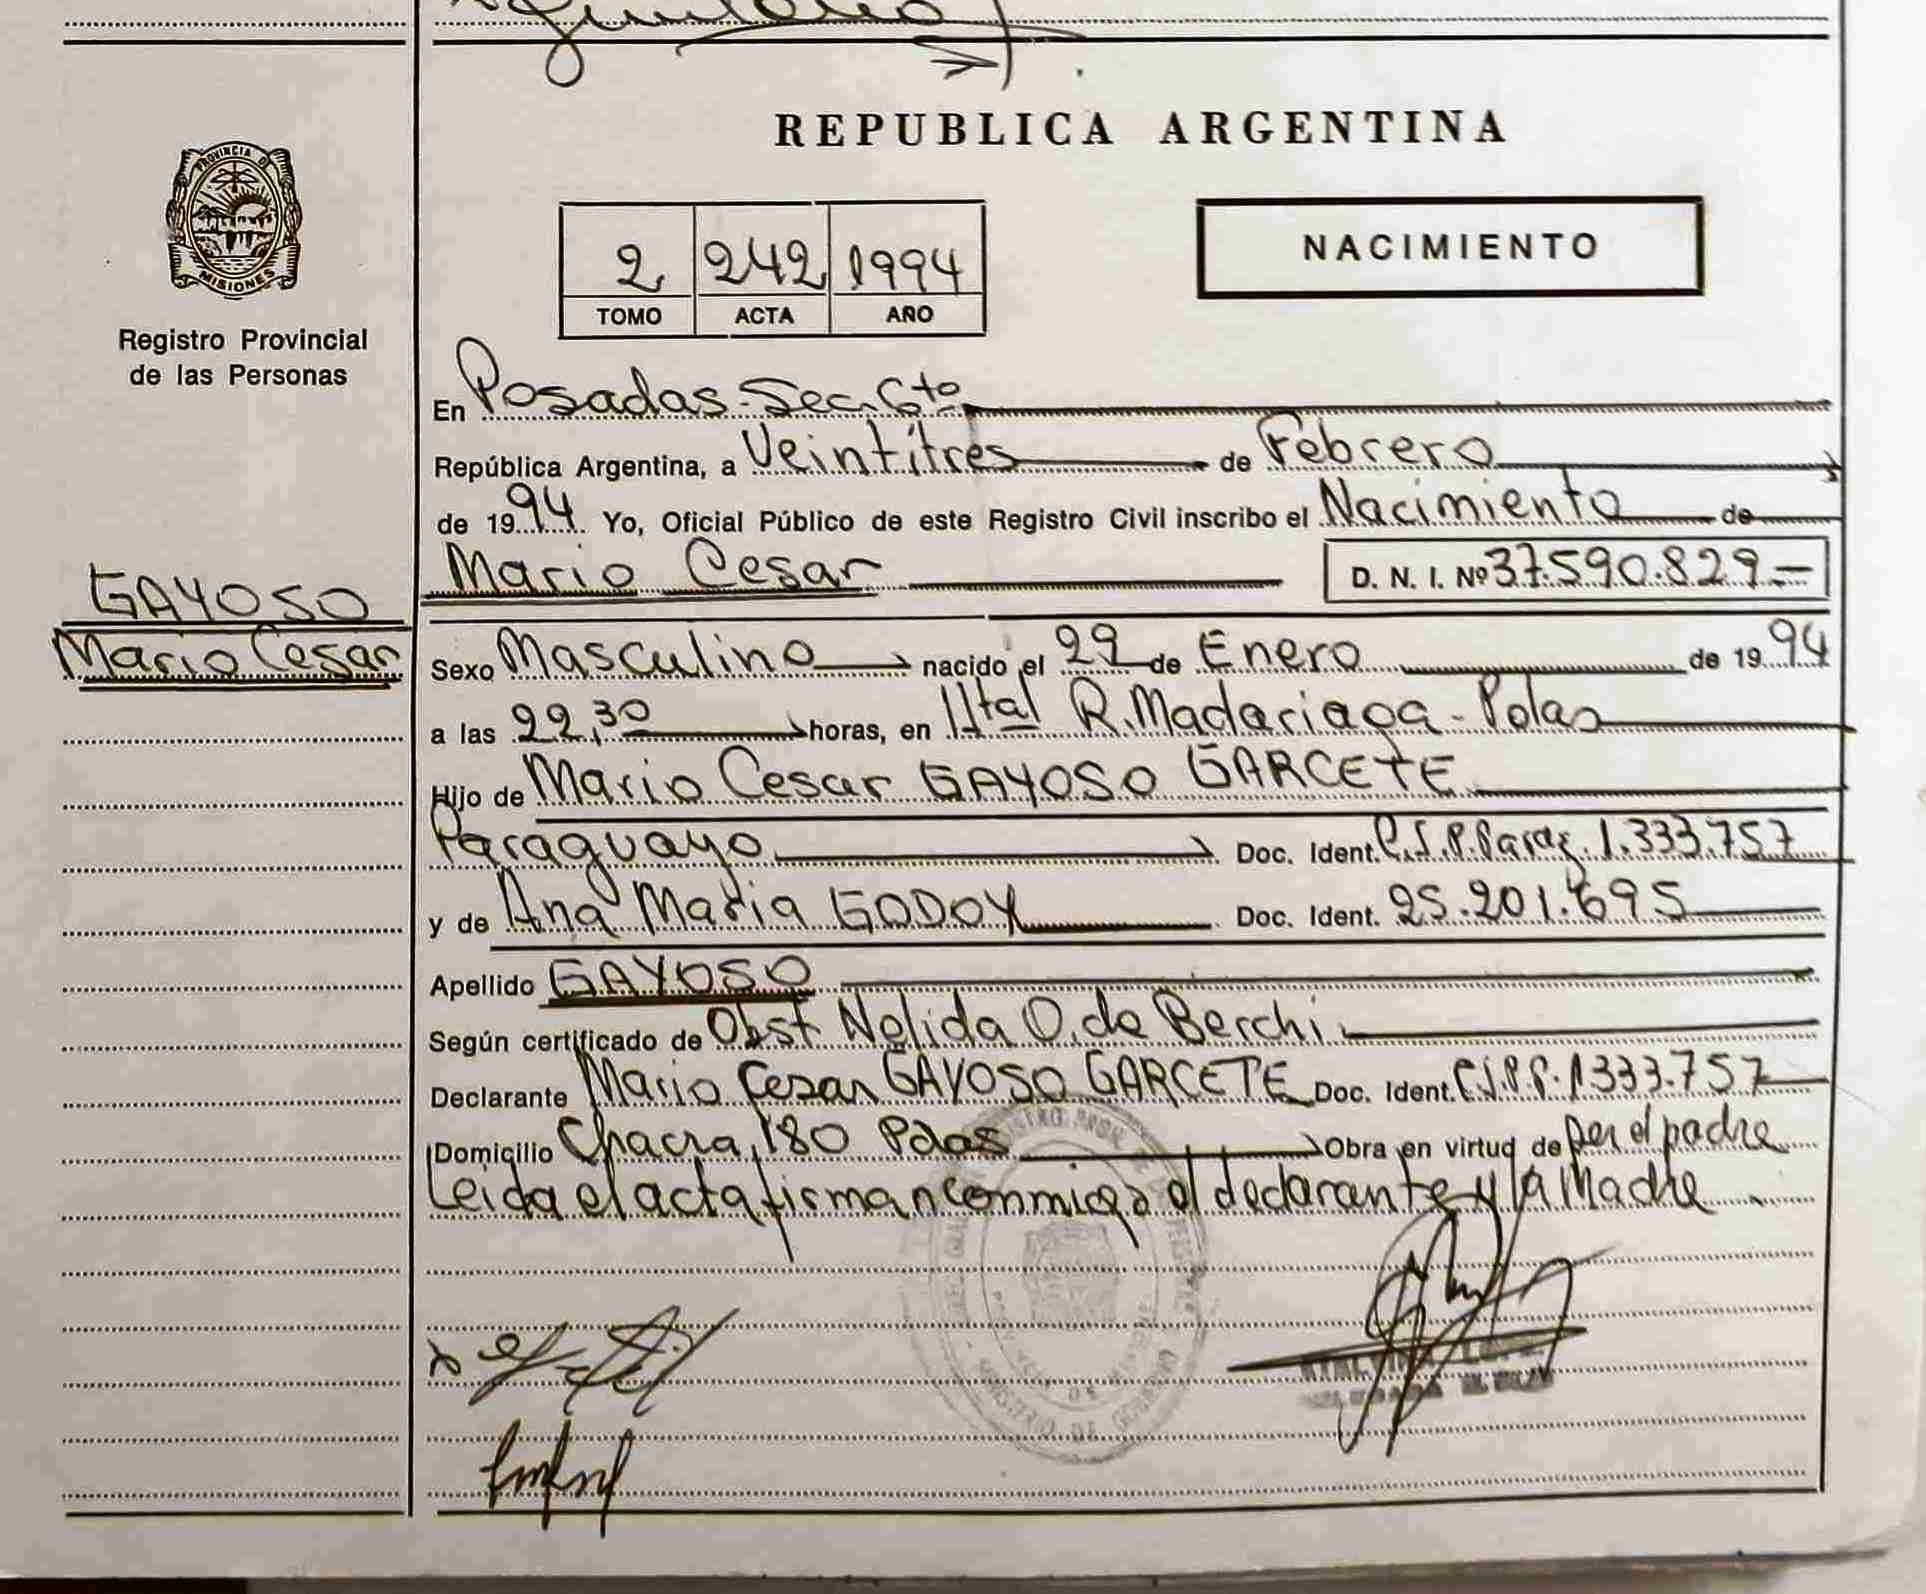 REPUBLICA ARGENTINA
PROVINCIA DE MISIONES
Registro Provincial
de las Personas
2 242 1994
TOMO ACTA AÑO
NACIMIENTO
En Posadas-Sec. 6to
República Argentina, a Veintitres de Febrero
de 1994 Yo, Oficial Público de este Registro Civil inscribo el Nacimiento de
Mario Cesar D. N. I. Nº 37.590.829.-
GAYOSO
Mario Cesar
Sexo Masculino nacido el 22 de Enero de 1994
a las 22,30 horas, en Htal R. Madariaga-Pdas
Hijo de Mario Cesar GAYOSO GARCETE
Paraguayo Doc. Ident. C.I.P. Parag. 1.333.757
y de Ana Maria GODOY Doc. Ident. 25.201.695
Apellido GAYOSO
Según certificado de Obst Nelida O. de Berchi
Declarante Mario Cesar GAYOSO GARCETE Doc. Ident. C.I.P.P. 1333.757
Domicilio Chacra 180 Pdas Obra en virtud de Ser el padre
Leida el acta firman conmigo el declarante y la Madre